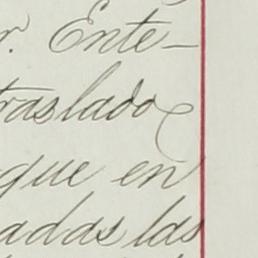 r. Ente-
traslado
que en
adas las